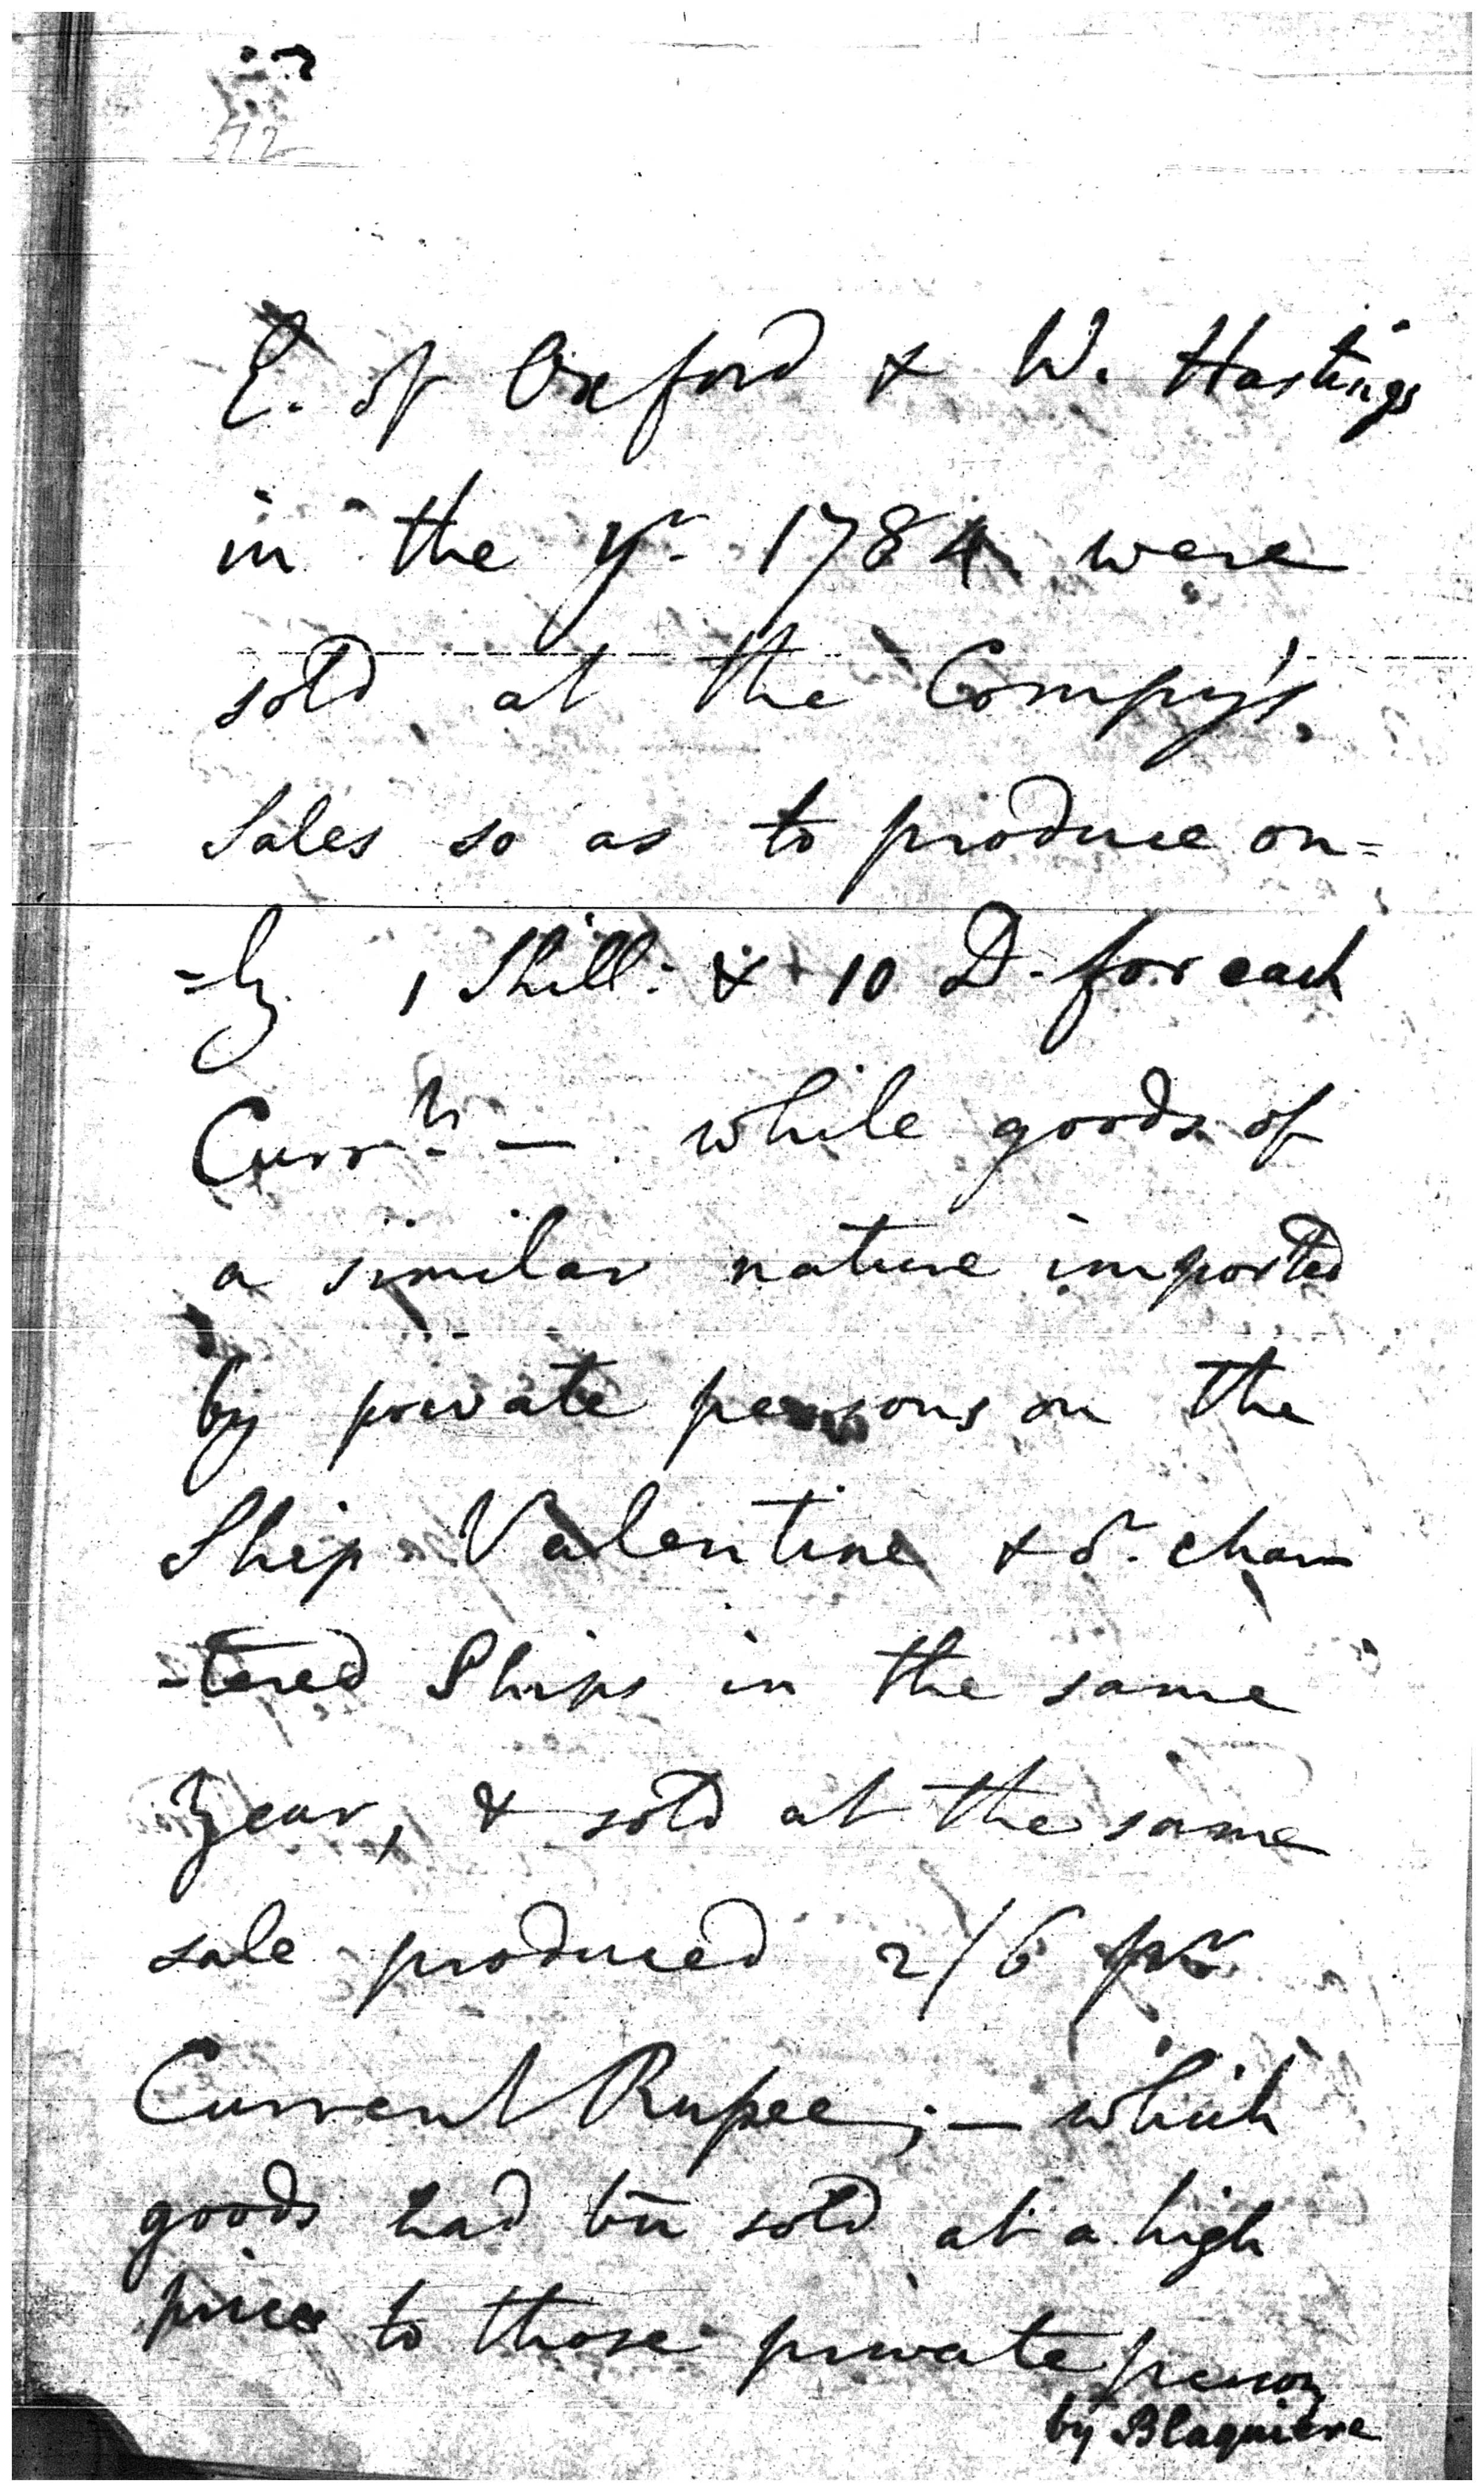 572
E. of Oxford & W. Hastings
in the yr. 1784 were
sold at the Compy's.
Sales so as to produce on=
=ly 1 Shill: & 10 D. for each
Curr. — while goods of
a similar nature imported
by private persons on the
Ship Valentine & 
-tered Ships in the same
year, & sold at the same
sale produced 2/6 pr
Current Rupee; — which
goods had bn sold at a high
price to those private person
by Blaquiere